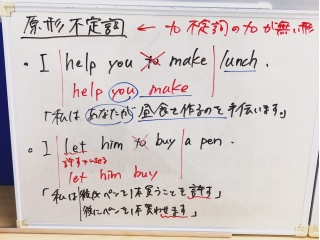 原形不定詞 ← to 不定詞の to が無い形
• I help you to make lunch.
help you make
「私はあなたが昼食を作るのを手伝います。」
• I let him to buy a pen.
let him buy
「私は彼がペンを1本買うことを許す」
彼にペンを1本買わせます」